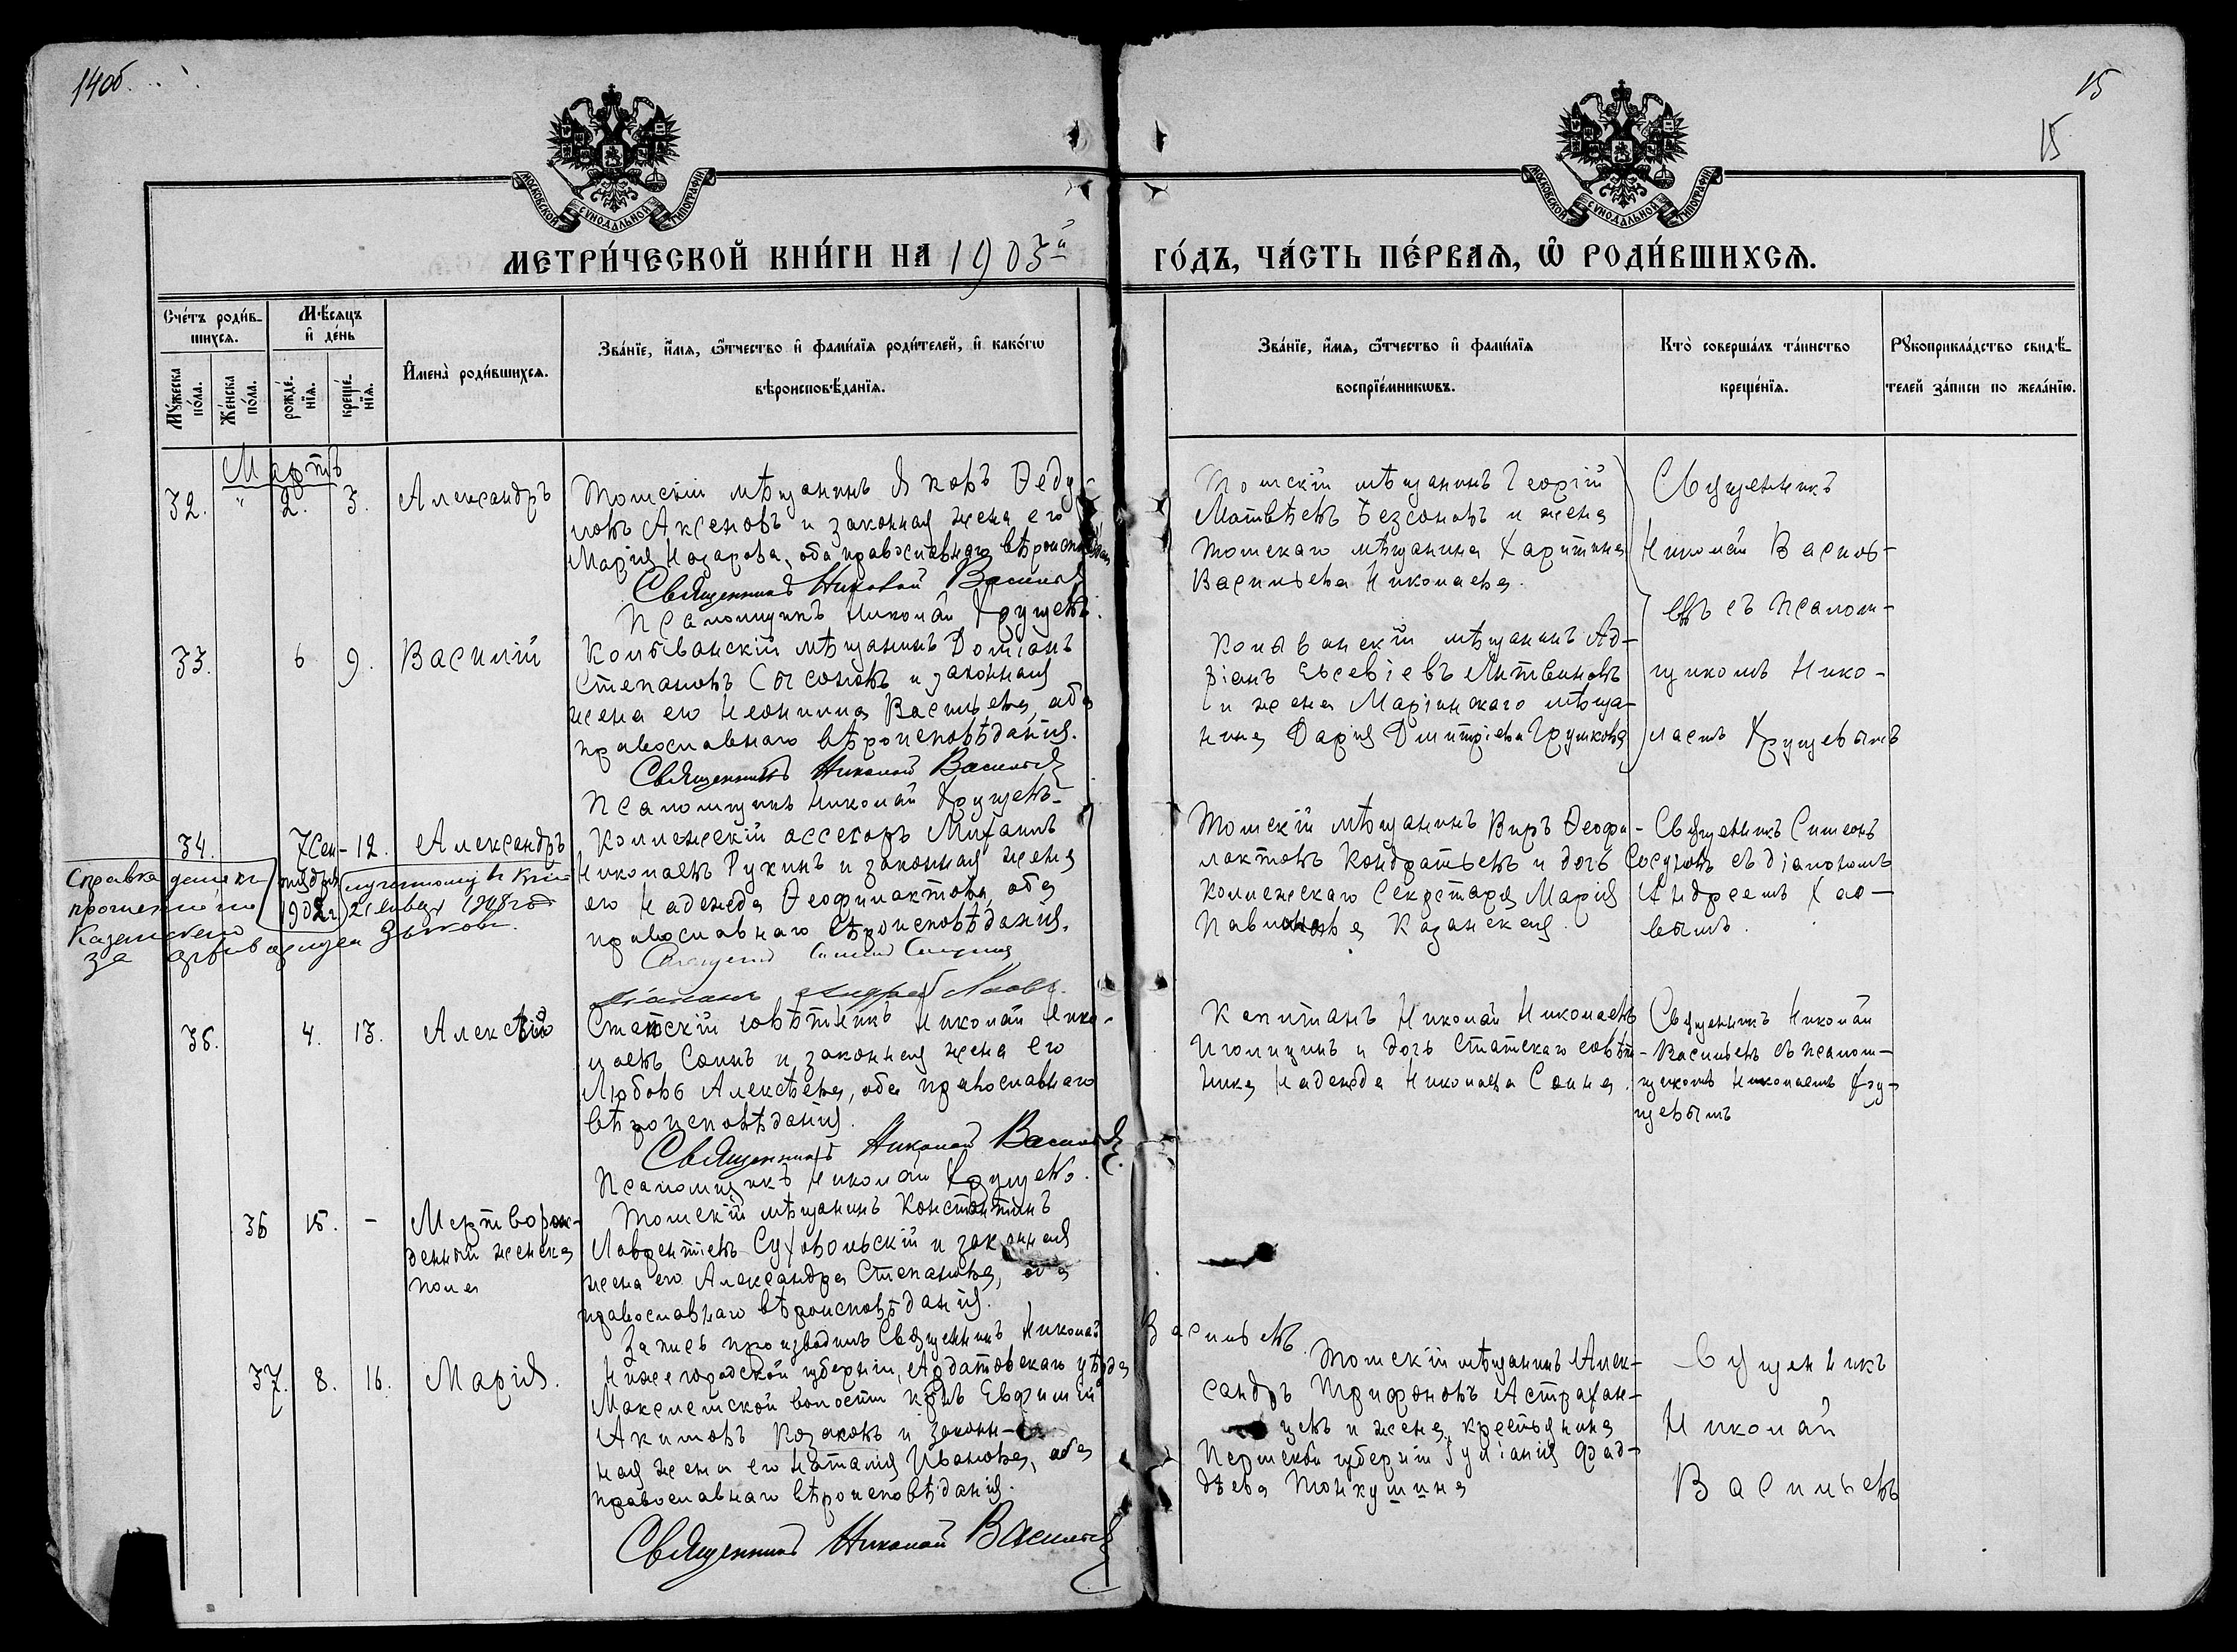 14об.
15
15
МОСКОВСКОЙ СѴНОДАЛЬНОЙ ТИПОГРАФІИ
МОСКОВСКОЙ СѴНОДАЛЬНОЙ ТИПОГРАФІИ
МЕТРИ́ЧЕСКОЙ КНИ́ГИ НА 1903й
ГО́ДЪ, ЧА́СТЬ ПЕ́РВАѦ, Ѽ РОДИ́ВШИХСѦ.
Сче́тъ роди́в-
шихсѧ.
Мѣ́сѧцъ
и҆ де́нь
Мꙋ́жеска
по́ла.
Же́нска
по́ла.
рожде́-
нїѧ.
креще́-
нїѧ.
И҆мена̀ роди́вшихсѧ.
Зва́нїе, и҆́мѧ, ѻ҆́тчество и҆ фами́лїѧ роди́телей, и҆ како́гѡ
вѣроисповѣ́данїѧ.
Зва́нїе, и҆́мѧ, ѻ҆́тчество и҆ фами́лїѧ
воспрїе́мникѡвъ.
Кто̀ соверша́лъ та́инство
креще́нїѧ.
Рꙋкоприкла́дство свидѣ́-
телей за́писи по жела́нїю.
Мартъ
32. " 2. 3. Александръ
Томскій мѣщанинъ Яковъ Ѳеду-
ловъ Аксеновъ и законная жена его
Марія Назарова, оба православнаго вѣроисповѣданія
Священникъ Николай Васильев
Псаломщикъ Николай Хрущевъ.
Томскій мѣщанинъ Георгій
Матвѣевъ Безсоновъ и жена
томскаго мѣщанина Харитина
Васильева Николаева.
Священникъ
Николай Василь-
евъ съ псалом-
щикомъ Нико-
лаемъ Хрущевымъ
33. 6 9. Василій
Колыванскій мѣщанинъ Домiанъ
Степановъ Сысоновъ и законная
жена его Неонилла Васильева, оба
православнаго вѣроисповѣданія.
Священникъ Николай Васильев
Псаломщикъ Николай Хрущевъ
Колыванскій мѣщанинъ Ад-
ріанъ Евсевіевъ Литвиновъ
и жена Маріинскаго мѣща-
нина Дарія Димитріева Грушкова
34. 7 Сен- 12. Александръ
тября
1902 г.
Коллежскій ассесоръ Михаилъ
Николаевъ Рукинъ и законная жена
его Надежда Ѳеофилактова, оба
православнаго вѣроисповѣданія.
Діаконъ Андрей
Томскій мѣщанинъ Виръ Ѳеофи-
лактовъ Кондратьевъ и дочь
коллежскаго секретаря Марія
Павлинова Казанская.
Священникъ Симеонъ
съ діакономъ
Андреемъ
вымъ.
Справка
Казанскаго
за
35. 4. 13. Алексѣй
Статскій совѣтникъ Николай Нико-
лаевъ Соинъ и законная жена его
Любовь Алексѣева, оба православнаго
вѣроисповѣданія.
Священникъ Николай Васильев
Псаломщикъ Николай Хрущевъ.
Капитанъ Николай Николаевъ
Иголицинъ и дочь статскаго совѣт-
ника Надежда Николаева Соина.
Священникъ Николай
Васильевъ съ псалом-
щикомъ Николаемъ Хру-
щевымъ
36 15. - Мертворож-
денный женска
пола
Томскій мѣщанинъ Константинъ
Лаврентіевъ Суховольскій и законная
жена его Александра Степанова, оба
православнаго вѣроисповѣданія.
Запись производилъ Священникъ Николай Васильевъ.
37. 8. 16. Марія.
Нижегородской губерніи, Ардатовскаго уѣзда
волости кр-нъ Евфимій
Акимовъ Козаковъ и законн-
ная жена его Наталія Иванова, оба
православнаго вѣроисповѣданія.
Священникъ Николай Васильев
Томскій мѣщанинъ Алек-
сандръ Трифоновъ Астрахан-
цевъ и жена крестьянина
Пермской губерніи Іуліанія Фад-
дѣева Тонкушина
Священникъ
Николай
Васильевъ